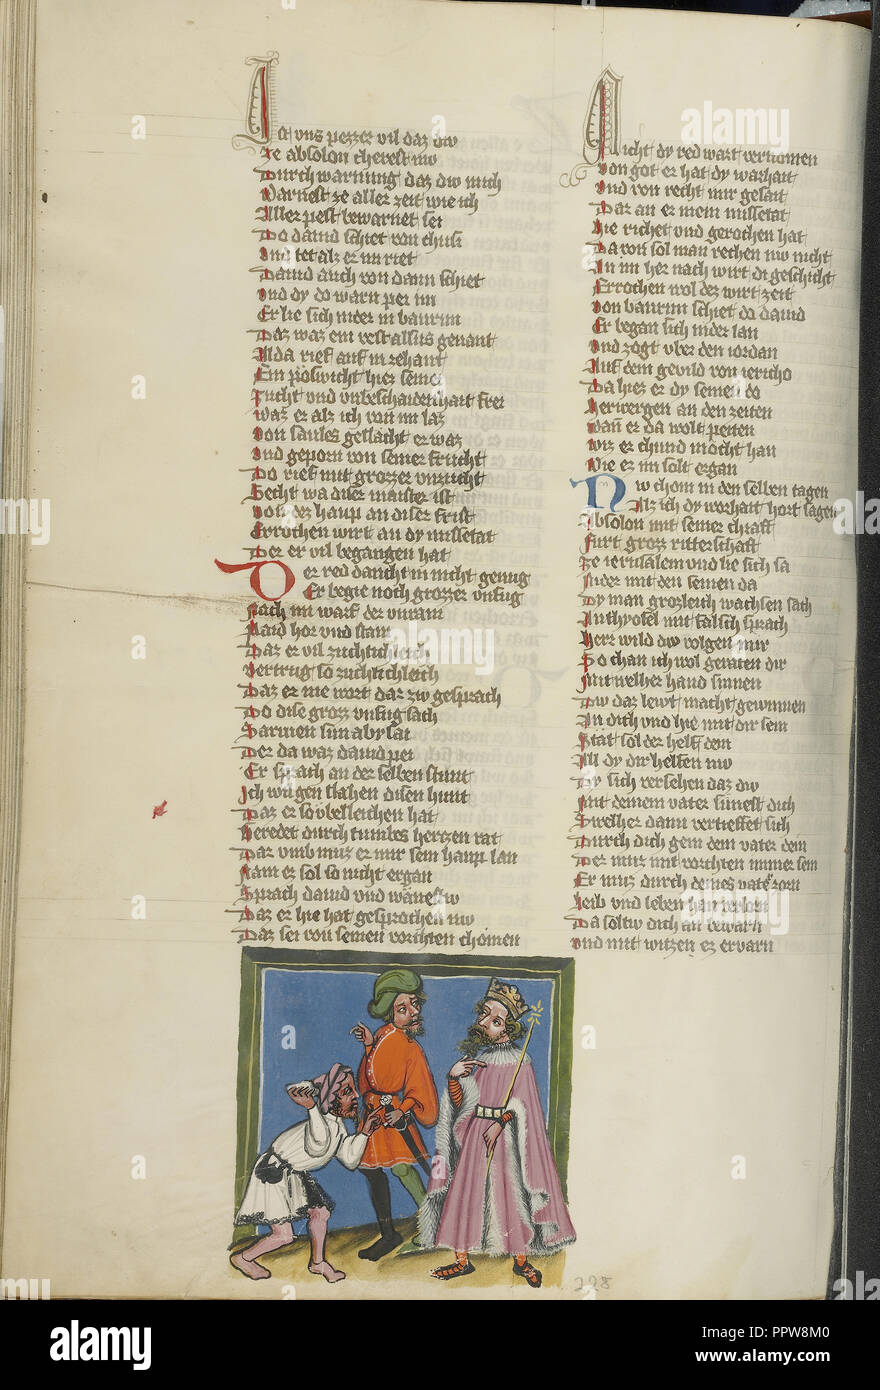 Ja vns pezzer vil daz dw
Ze absolon cherest nw
Durch warnung daz dw mich
Warnest ze aller zeit wie ich
Aller pest bewarnet sei
Do dauid schiet von chusi
Vnd tet alz er im riet
Dauid auch von dann schiet
Vnd dy do warn per im
Er lie sich nider in baurim
Daz waz ein vest alsus genant
Alda rief auf in zehant
Ein poswicht hier semei
Zucht vnd vnbeschaidenhait frei
Waz er alz ich von im laz
Von saules geslacht er waz
Vnd geporn von seiner frucht
Do rief mit grozzer vnzucht
Secht wa diser maister ist
Vof dez haup an diser frist
Errochen wirt an dy missetat
Der er vil begangen hat
Der red daucht in nicht genug
Er begie noch grozzer vnfug
Nach im warf der vnrain
Paid hor vnd stain
Daz er vil zuchtichleich
Vertrug so zuchtichleich
Daz er nie wort dar zw gesprach
Do dise groz vnfug sach
Sarmen sun abysai
Der da waz dauid pei
Er sprach an der selben stunt
Ich wil gen slahen disen hunt
Daz er so vbelleichen hat
Geredet durch tumbes hertzen rat
Dar vmb muz er mir sein haup lan
Nain er sol so nicht ergan
Sprach dauid vnd wänestw
Daz er hie hat gesprochen nw
Daz sei von seinen vorchten chömen
Nicht dy red wart vernomen
Von got er hat dy warhait
Vnd von recht mir gesait
Dar an er mein missetat
Hie richet vnd gerochen hat
Da von sol man rechen nw nicht
An im her nach wirt di geschicht
Errochen wol dez wirt zeit
Von baurim schiet do dauid
Er began sich nider lan
Vnd zogt vber den iordan
Auf dem gevild von iericho
Da hiez er dy seinen do
Herwergen an den zeiten
Wan er da wolt peiten
Wiz er chund mocht han
Wie ez im solt ergan
Nw chom in den selben tagen
Alz ich dy worhait hort sagen
Absolon mit seiner chraft
Furt groz ritterschaft
Ze ierusalem vnd lie sich sa
Nider mit den seinen da
Dy man grozleich wachsen sach
Anthyofel mit falsch sprach
Herr wild dw volgen mir
So chan ich wol geraten dir
Mit welher hand sinnen
Dw daz lewt macht gewinnen
An dich vnd hie mit dir sein
Stat sol der helf dein
All dy dir helfen nw
Dy sich versehen daz dw
Mit deinem vater sunest dich
Swelher dann vertieffet sich
Durch dich gein dem vater dein
Der muz mit vorchten immer sein
Er muz durch deines vaterzorn
Leib vnd leben han verlorn
Da soltw dich an bewarn
Vnd mit witzen ez ervarn
228
alamy
Image ID: PPW8M0
www.alamy.com